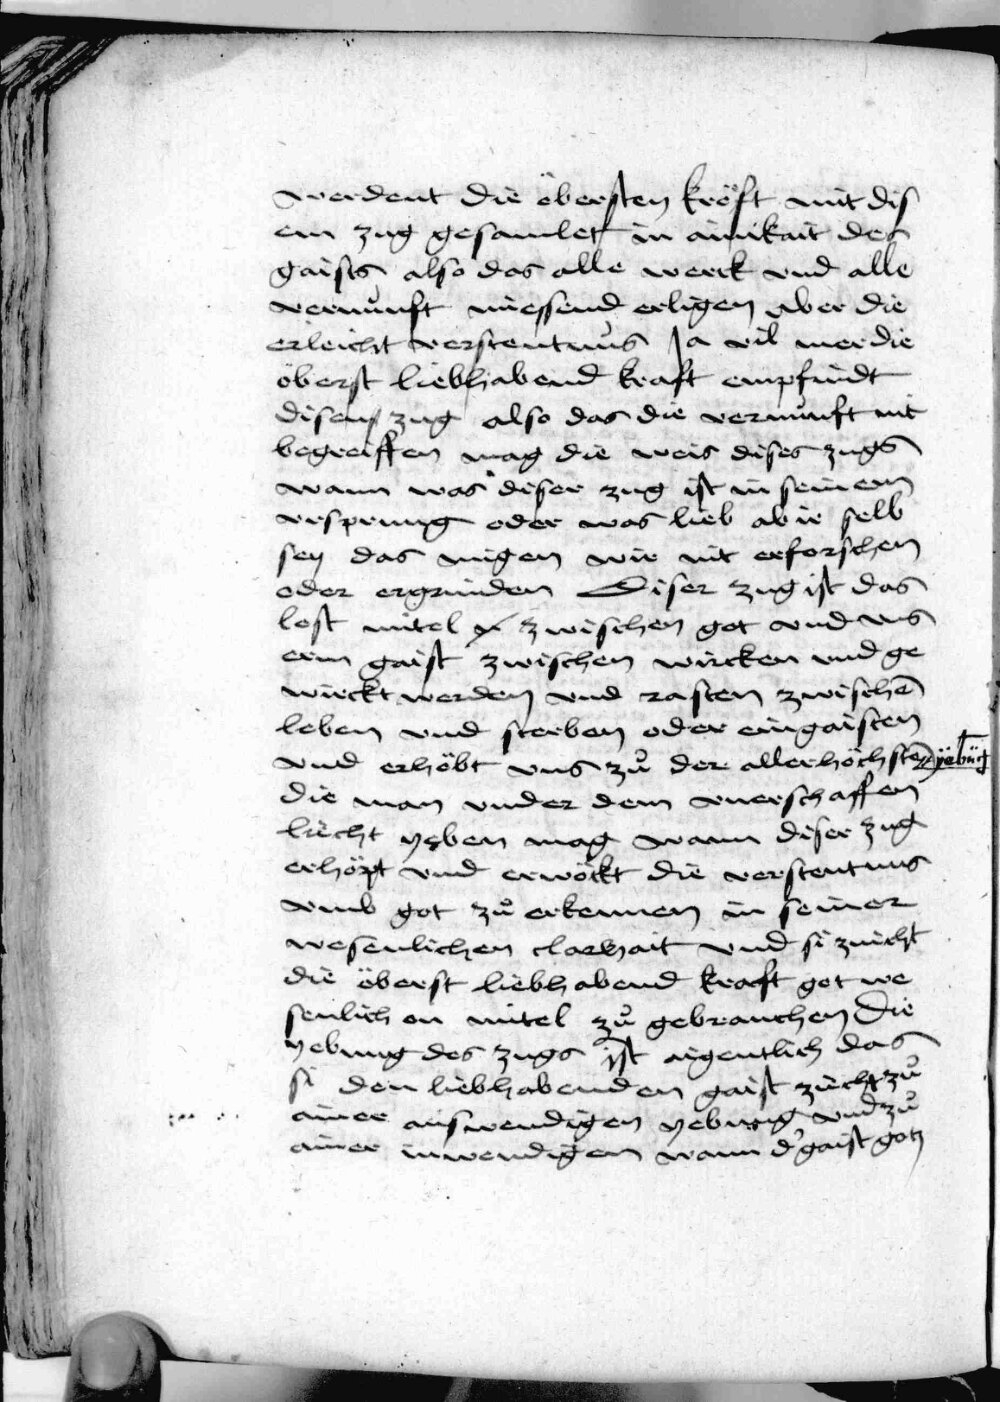 werdent die öbersten kröft mit dis
em zug gesamlet in ainikait des
gaists also das alle werck vnd alle
vernunft niessend erligen aber die
erleicht verstentnus Ja vil mer die
öberst liebhabend kraft empfindt
disen zug also das die vernunft nit
begreiffen mag die weis dises zugs
wann was diser zug ist in seinem
vrsprung oder was lieb ab ir selb
sey das mügen wir nit erforschen
oder ergrunden Diser zug ist das
lest mitel zwischen got vnd vns
erm gaist zwischen wircken vnd ge
wirckt werden vnd rasten zwischē
leben vnd sterben oder eingaisten
vnd erhöbt vns zů der allerhöchsten yebūg
die man vnder dem vnerschaffen
liecht yeben mag wann diser zug
erhöpt vnd erwöckt die verstentnus
vmb got zů erkennen in seiner
wesenlichen clarhait vnd si zuicht
die öberst liebhabend kraft got we
senlich on mitel zů gebrauchen Die
yebung des zugs ist aigentlich das
si den liebhabenden gaist zuicht zů
ainer auswendigen yebung vnd zů
ainer inwendigen wann d' gaist gotz